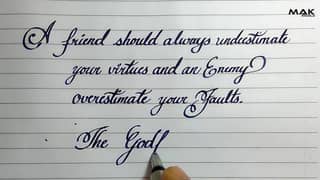 MAK
A friend should always underestimate
your virtues and an Enemy
overestimate your faults.
The God